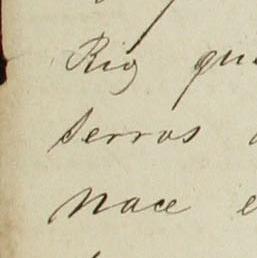 Rio qu
serros
nace e